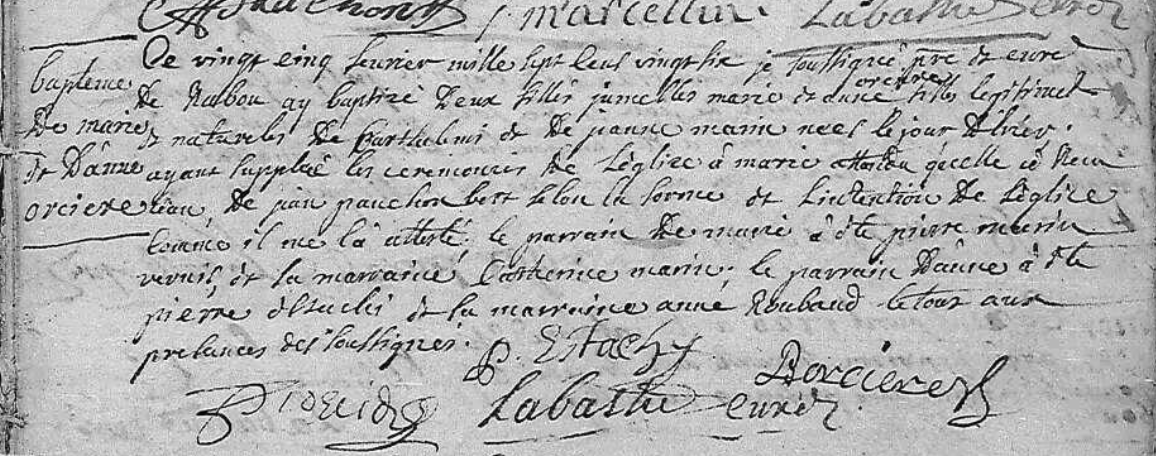 marcellin. Labastie curé
bapteme
De marie
et D'anne
orciere
Ce vingt cinq fevrier mille sept cens vingt six je soussigné pre et curé
de Rabou ay baptizé Deux filles jumelles marie et anne orciere filles legitimes
et natureles De Barthelemi et De jeanne marin nees le jour D'hier.
ayant supplée les ceremonies De L'église à marie attendu qu'elle a receu
l'eau, De jean pauchon bert selon la forme et L'intention De L'église
comme il me l'a attesté; le parrain De marie à été pierre marin
vernis, et la marraine Catherine marin. le parrain D'anne à été
pierre éstachi et la marraine anne Roubaud le tout aux
presances des soussignes.
P. Estachy
B orciere
Labastie curé